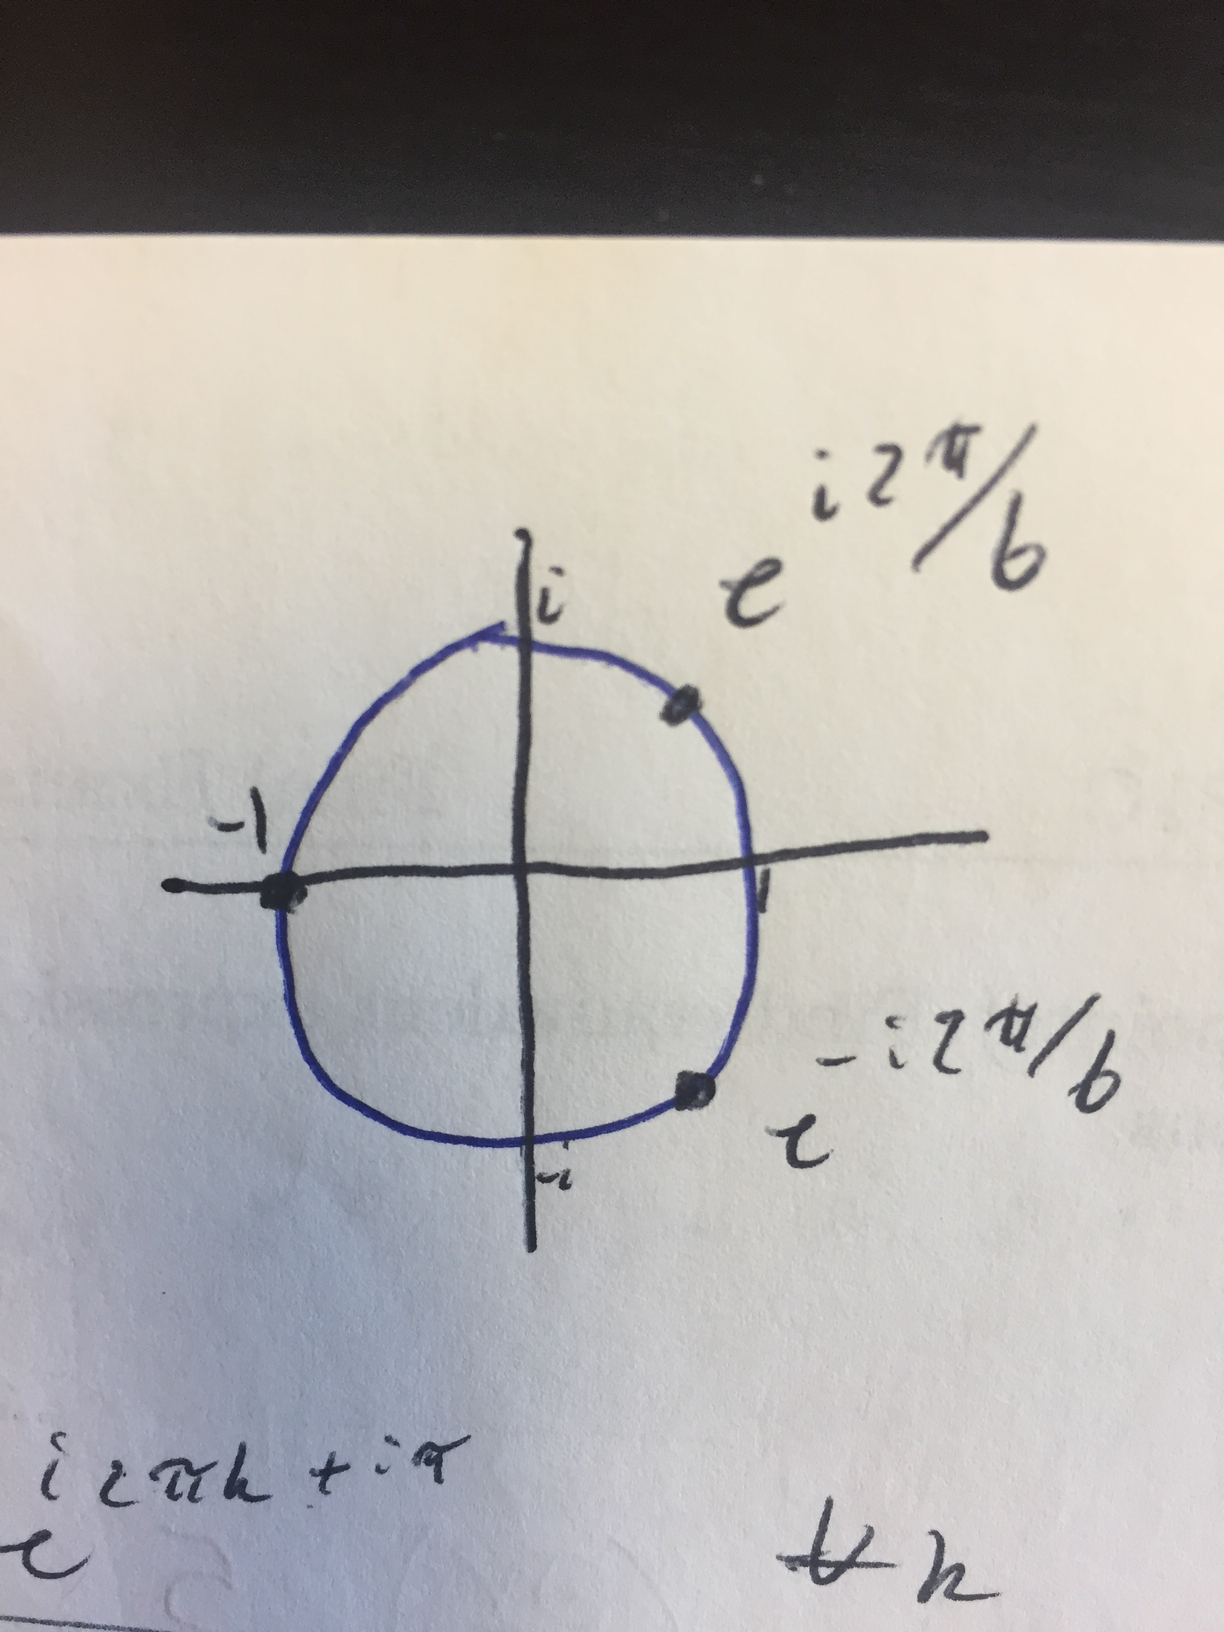 e^{i2π/6}
i
-1
1
e^{-i2π/6}
-i
e^{i2πk + iπ} ∀k